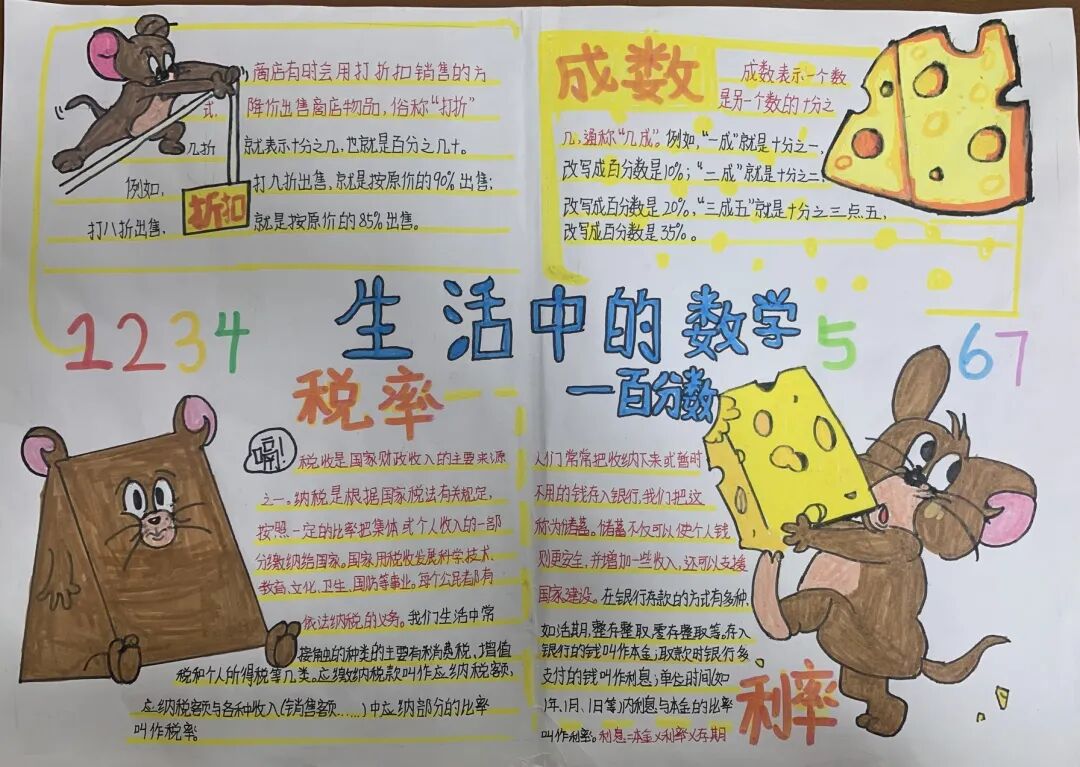 商店有时会用打折扣销售的方
式. 降价出售商店物品，俗称“打折”
几折 就表示十分之几，也就是百分之几十。
例如， 打九折出售，就是按原价的90%出售；
打八折出售， 就是按原价的85%出售。
折扣
成数
成数表示一个数
是另一个数的十分之
几，通称“几成”。例如，“一成”就是十分之一，
改写成百分数是10%；“二成”就是十分之二，
改写成百分数是20%，“三成五”就是十分之三点五，
改写成百分数是35%。
生活中的数学
一百分数
1234
5 67
税率
嗝!
税收是国家财政收入的主要来源
之一。纳税是根据国家税法有关规定，
按照一定的比率把集体或个人收入的一部
分缴纳给国家。国家用税收发展科学技术、
教育、文化、卫生、国防等事业。每个公民都有
依法纳税的义务。我们生活中常
接触的种类的主要有消费税、增值
税和个人所得税等几类。应缴纳税款叫作应纳税额，
应纳税额与各种收入(销售额……)中应纳部分的比率
叫作税率。
人们常常把收纳下来或暂时
不用的钱存入银行，我们把这
称为储蓄。储蓄不仅可以使个人钱
则更安全，并增加一些收入，还可以支援
国家建设。在银行存款的方式有多种，
如活期，整存整取，零存整取等。存入
银行的钱叫作本金；取款时银行多
支付的钱叫作利息；单位时间(如
1年、1月、1日等)内利息与本金的比率
叫作利率。利息=本金×利率×存期
利率